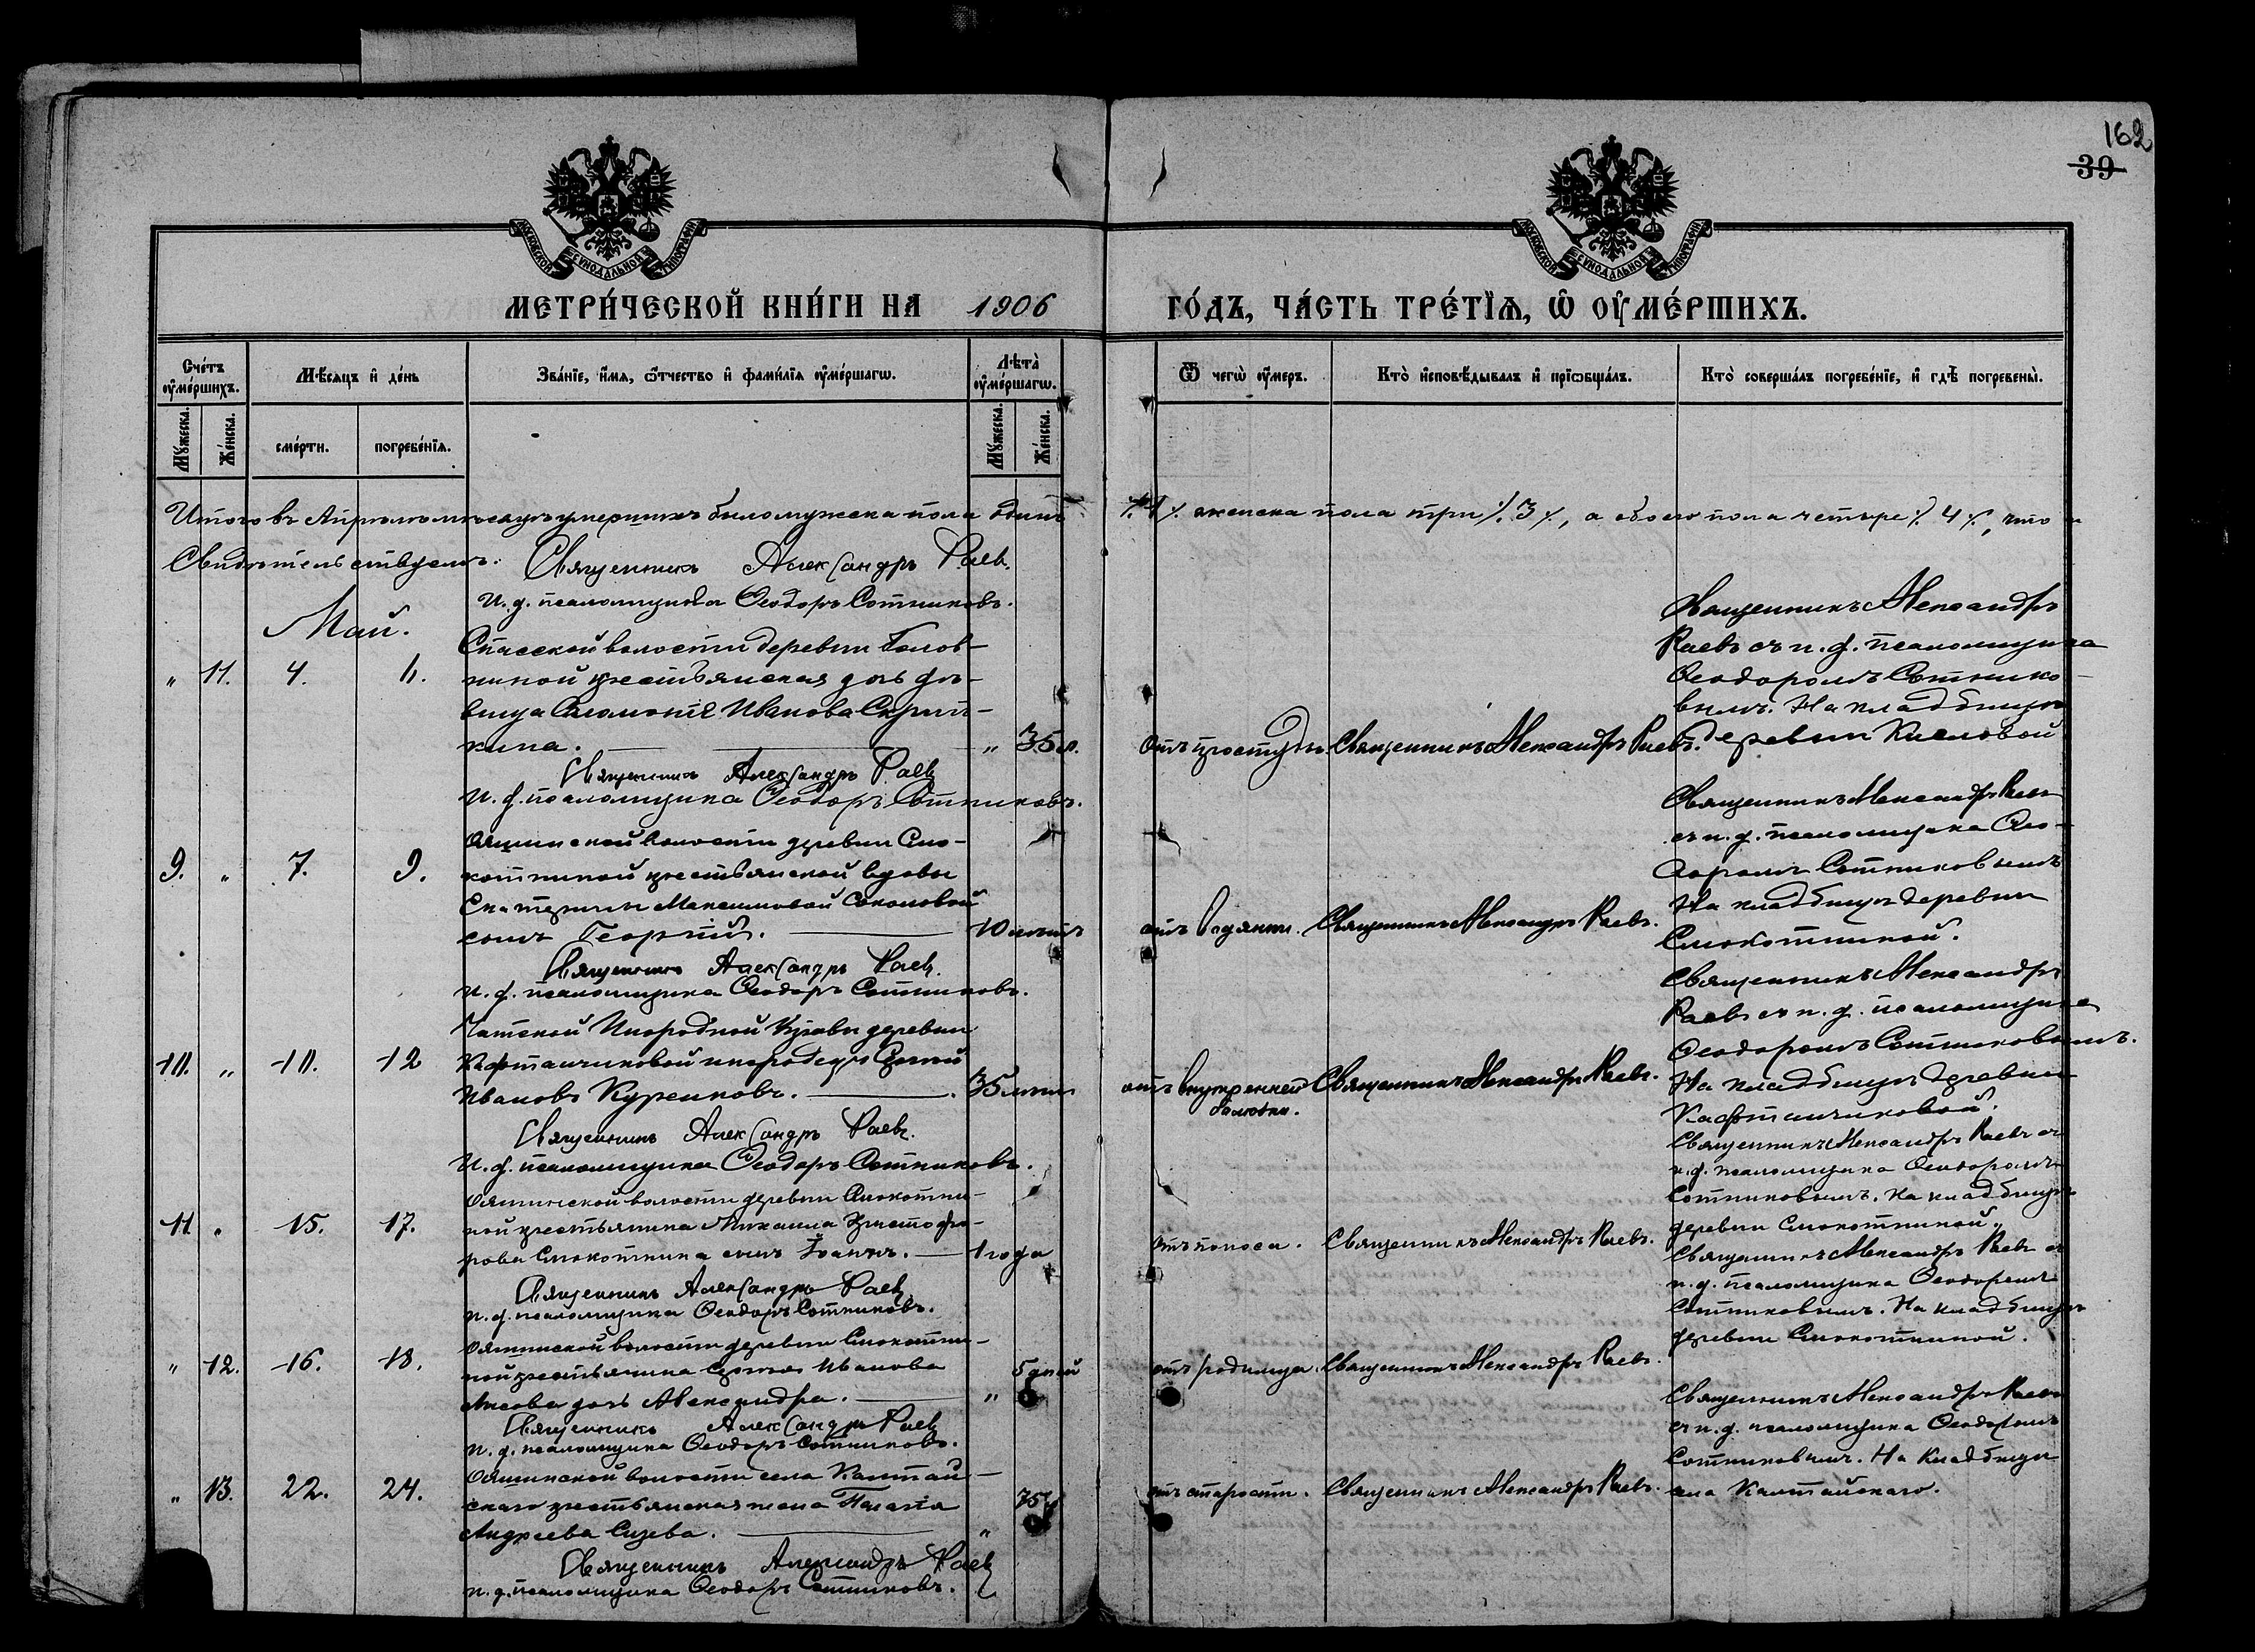 162
39
МОСКОВСКОЙ СѴНОДАЛЬНОЙ ТИПОГРАФІИ
МОСКОВСКОЙ СѴНОДАЛЬНОЙ ТИПОГРАФІИ
МЕТРИ́ЧЕСКОЙ КНИ́ГИ НА 1906 ГО́ДЪ, ЧА́СТЬ ТРЕ́ТЇѦ, Ѡ҆ ОУ҆МЕ́РШИХЪ.
Сче́тъ оу҆ме́ршихъ.
Мꙋ́жеска.
Же́нска.
Мѣ́сѧцъ и҆ де́нь
сме́рти.
погребе́нїѧ.
Зва́нїе, и҆́мѧ, ѻ҆́тчество и҆ фами́лїѧ оу҆ме́ршагѡ.
Лѣ̀та оу҆ме́ршагѡ.
Мꙋ́жеска.
Же́нска.
Ѿ чегѡ̀ оу҆́меръ.
Кто̀ и҆сповѣ́дывалъ и҆ прїѡбща́лъ.
Кто̀ соверша́лъ погребе́нїе, и҆ гдѣ̀ погребены̀.
Итого въ Апрѣлѣ мѣсяцѣ умершихъ было мужска пола одинъ ⁒ 1 ⁒ женска пола три ⁒ 3 ⁒, а обоего пола четыре ⁒ 4 ⁒, что и
Свидѣтельствуемъ:
Священникъ Александръ Раевъ.
И. д. псаломщика Ѳеодоръ Сотниковъ.
Май.
" 11. 4.
Спасской волости деревни
крестьянская дочь дѣ-
вица Соломонія Иванова Скрип-
кина. " 35 л.
отъ простуды. Священникъ Александръ Раевъ.
Священникъ Александръ
Раевъ съ и. д. псаломщика
Ѳеодоромъ Сотнико-
вымъ. На кладбищѣ
деревни Кисловой
Священникъ Александръ Раевъ
И. д. псаломщика Ѳеодоръ Сотниковъ.
9. " 7. 9.
Ояшинской волости деревни Смо-
котниной крестьянской вдовы
Екатерины Максимовой Соколовой
сынъ Георгій. 10 лѣтъ
отъ водянки. Священникъ Александръ Раевъ.
Священникъ Александръ Раевъ
съ и. д. псаломщика Ѳео-
доромъ Сотниковымъ
На кладбищѣ деревни
Смокотниной.
Священникъ Александръ Раевъ.
и. д. псаломщика Ѳеодоръ Сотниковъ.
10. " 10. 12
Чатской Инородной Управы деревни
Кафтанчиковой инородецъ Сергѣй
Ивановъ Куренковъ. 35 лѣтъ
отъ внутренней
болѣзни.
Священникъ Александръ Раевъ.
Священникъ Александръ
Раевъ съ и. д. псаломщика
Ѳеодоромъ Сотниковымъ.
На кладбищѣ деревни
Кафтанчиковой.
Священникъ Александръ Раевъ.
И. д. псаломщика Ѳеодоръ Сотниковъ.
11. " 15. 17.
Ояшинской волости деревни Смокотни-
ной крестьянина Михаила Христофо-
рова Смокотнина сынъ Іоаннъ. 1 года
отъ поноса. Священникъ Александръ Раевъ.
Священникъ Александръ Раевъ съ
и. д. псаломщика Ѳеодоромъ
Сотниковымъ. На кладбищѣ
деревни Смокотниной.
Священникъ Александръ Раевъ
и. д. псаломщика Ѳеодоръ Сотниковъ.
" 12. 16. 18.
Ояшинской волости деревни Смокотни-
ной крестьянина Сергѣя Иванова
Лисова дочь Александра. " 5 дней
отъ родимца. Священникъ Александръ Раевъ.
Священникъ Александръ Раевъ съ
и. д. псаломщика Ѳеодоромъ
Сотниковымъ. На кладбищѣ
деревни Смокотниной.
Священникъ Александръ Раевъ
и. д. псаломщика Ѳеодоръ Сотниковъ.
" 13. 22. 24.
Ояшинской волости села Калтай-
скаго крестьянская жена Пелагія
Андреева Сизева. " 75
отъ старости. Священникъ Александръ Раевъ.
Священникъ Александръ Раевъ
съ и. д. псаломщика Ѳеодоромъ
Сотниковымъ. На кладбищѣ
села Калтайскаго.
Священникъ Александръ Раевъ
и. д. псаломщика Ѳеодоръ Сотниковъ.